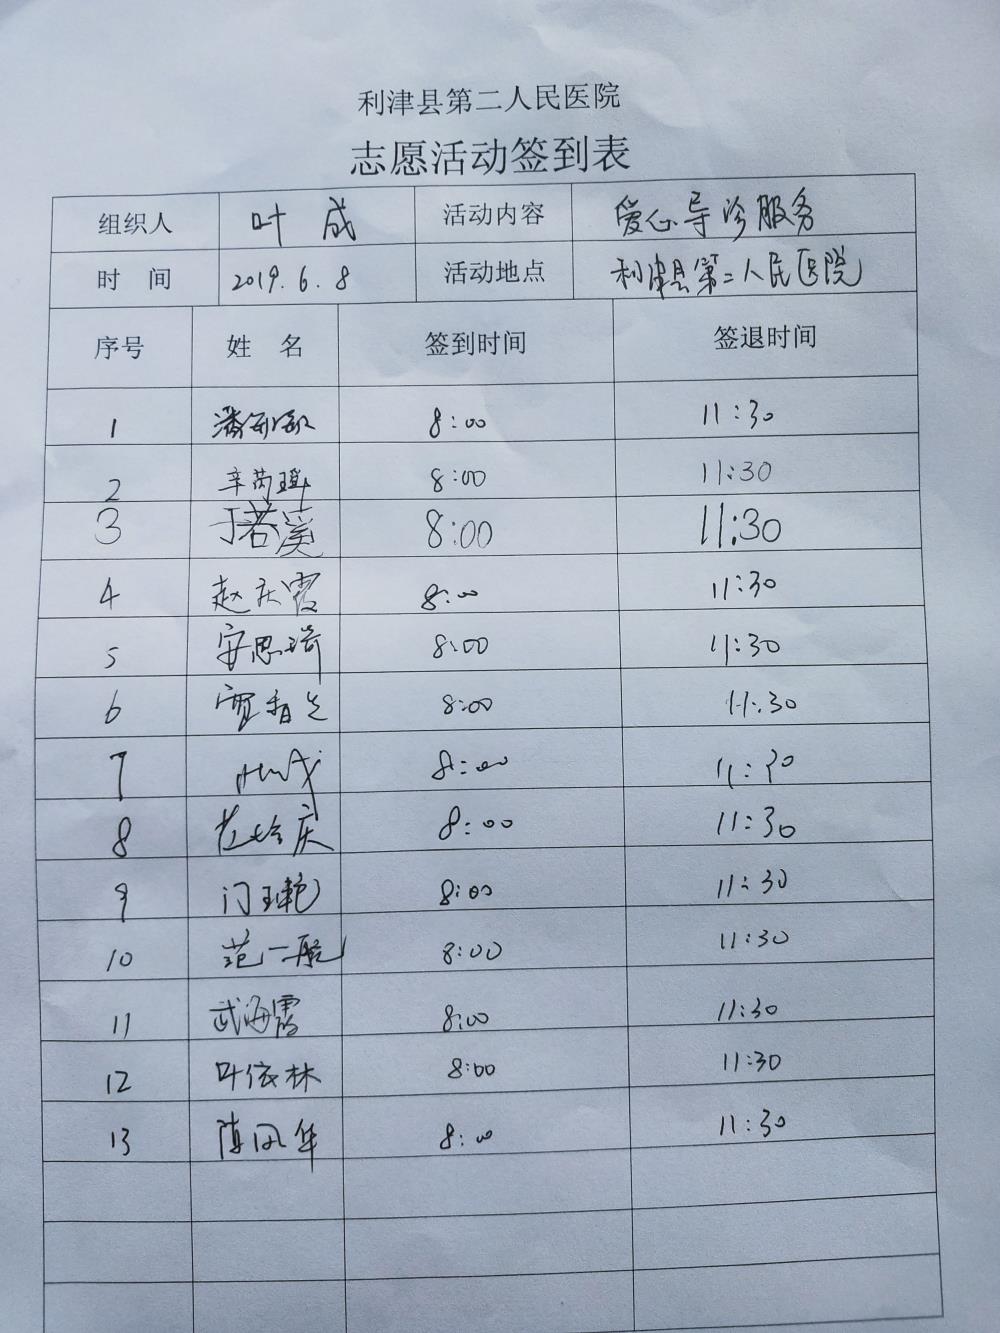 利津县第二人民医院
志愿活动签到表
组织人 叶成 活动内容 爱心导诊服务
时 间 2019.6.8 活动地点 利津县第二人民医院
序号 姓 名 签到时间 签退时间
1 8:00 11:30
2 辛芮瑶 8:00 11:30
3 于若溪 8:00 11:30
4 赵庆霞 8:00 11:30
5 安思琦 8:00 11:30
6 8:00 11:30
7 叶成 8:00 11:30
8 8:00 11:30
9 门玉艳 8:00 11:30
10 范一航 8:00 11:30
11 武海霞 8:00 11:30
12 叶依林 8:00 11:30
13 陈风华 8:00 11:30